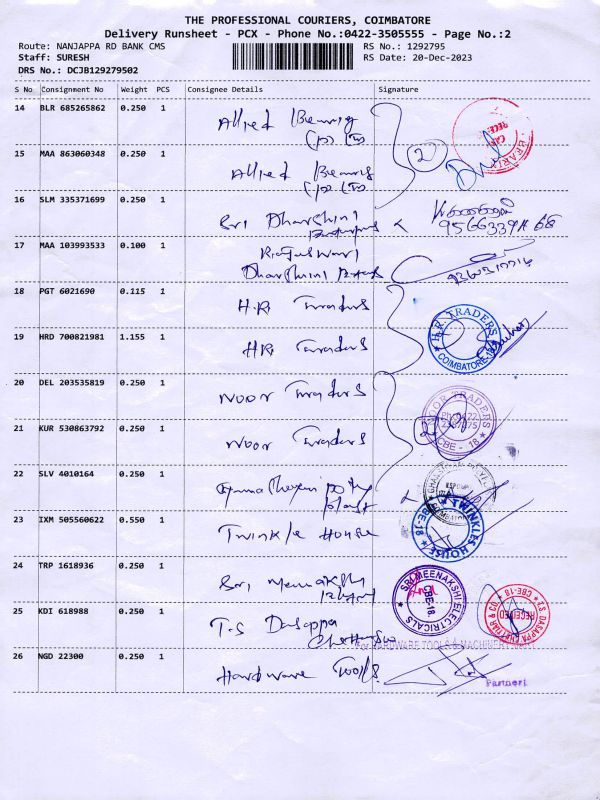 THE PROFESSIONAL COURIERS, COIMBATORE
Delivery Runsheet - PCX - Phone No.:0422-3505555 - Page No.:2
Route: NANJAPPA RD BANK CMS
RS No.: 1292795
Staff: SURESH
RS Date: 20-Dec-2023
DRS No.: DCJB129279502
S No Consignment No Weight PCS Consignee Details Signature
14 BLR 685265862 0.250 1
Alfred
15 MAA 863060348 0.250 1
Alfred
2
16 SLM 335371699 0.250 1
Sri Dharshini
17 MAA 103993533 0.100 1
Rajeswari
Dharshini
18 PGT 6021690 0.115 1 H.R. Traders
19 HRD 700821981 1.155 1 HR Traders
H.R. TRADERS
COIMBATORE-18
20 DEL 203535819 0.250 1 Noor Traders
NOOR TRADERS
CBE - 18
21 KUR 530863792 0.250 1 Noor Traders
2
22 SLV 4010164 0.250 1
23 IXM 505560622 0.550 1 Twinkle House
TWINKLES HOUSE
CBE-18
24 TRP 1618936 0.250 1 Sri Meenakshi
SRI MEENAKSHI ELECTRICALS
CBE-18.
25 KDI 618988 0.250 1 T.S Dasappa
Chettiar
T.S. DASAPPA CHETTIAR & CO
RECEIVED
CBE-18
For HARDWARE TOOLS & MACHINERY
26 NGD 22300 0.250 1 Hardware Tools
Partner